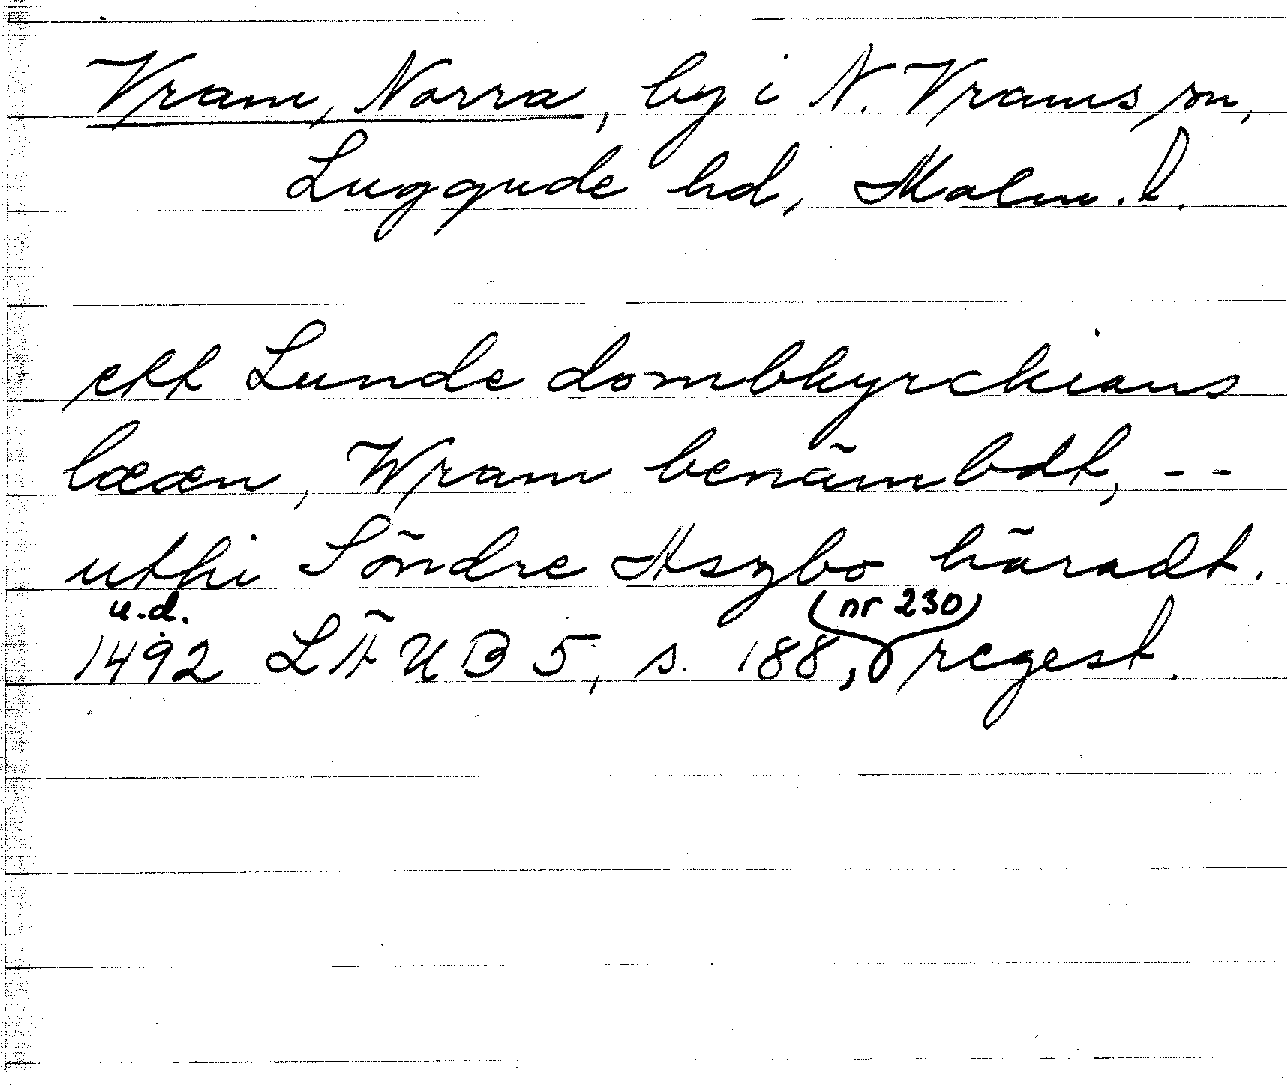 Vram, Norra, by i N. Vrams sn,
Luggude hd, Malm. l.
ett Lunde dombkyrckians
lææn, Wram benämbdt, --
uthi Söndre Aszbo häradt.
u.d.
1492 LÄUB 5, s. 188, (nr 230) regest.